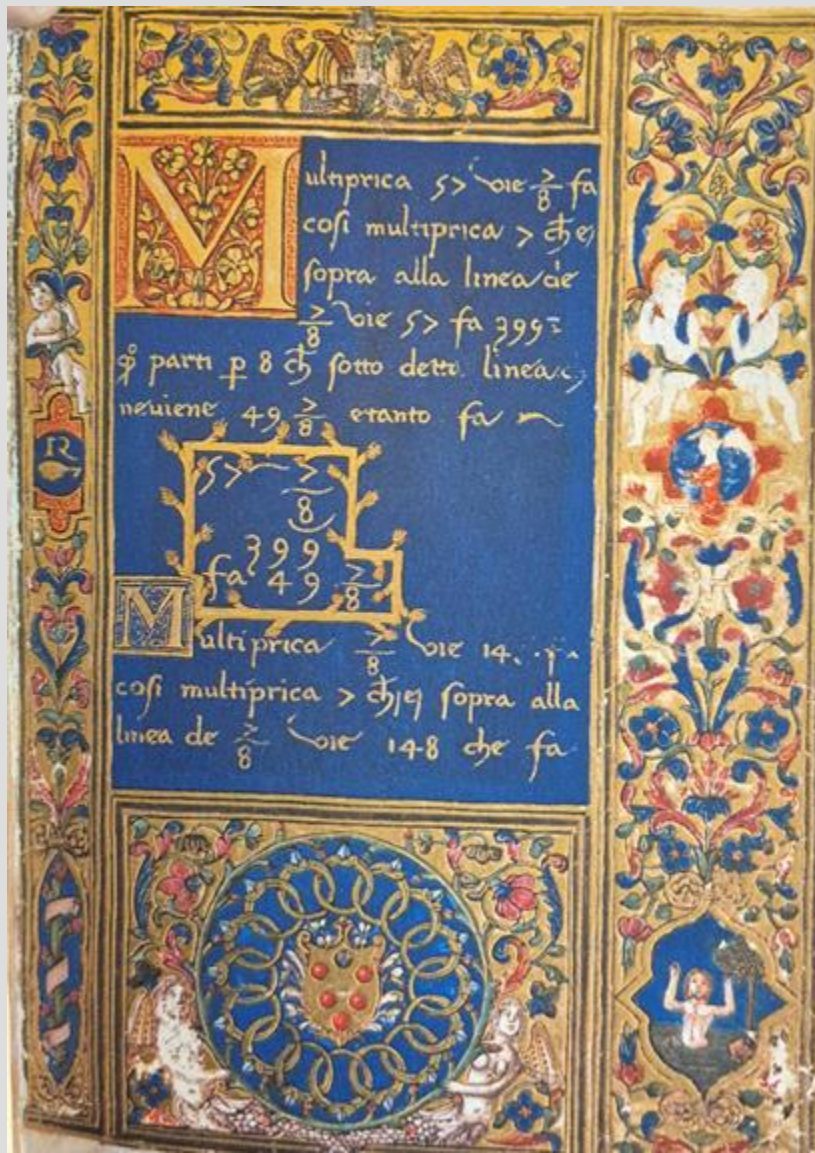 Multiprica 57 vie 7/8 fa
cosi multiprica 7 ch e
sopra alla linea de
7/8 vie 57 fa 399
parti p 8 ch sotto detta linea
neviene 49 7/8 etanto fa
57 7/8
399
fa 49 7/8
Multiprica 7/8 vie 14
cosi multiprica 7 ch e sopra alla
linea de 7/8 vie 148 che fa
R